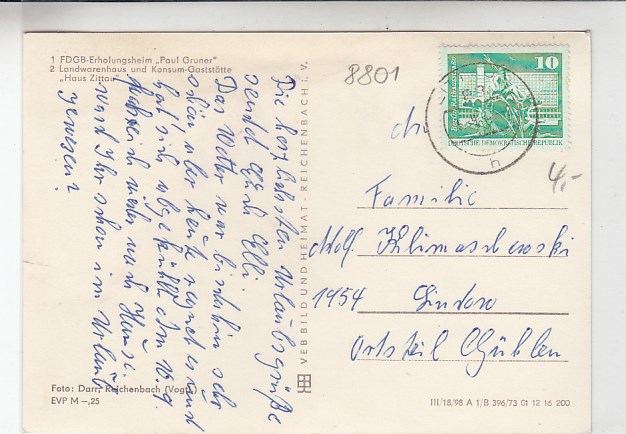 1 FDGB-Erholungsheim „Paul Gruner“
2 Landwarenhaus und Konsum-Gaststätte
„Haus Zittau“
Die herzlichsten Urlaubsgrüße
sendet Elli.
Das Wetter war bisher sehr
schön aber heute regnet es und
hat sich abgekühlt. Am 16. 9.
wieder nach Hause.
wart Ihr schon im Urlaub
gewesen?
Foto: Darr, Reichenbach (Vogtl.)
EVP M –,25
VEB BILD UND HEIMAT · REICHENBACH I. V.
8801
10
DEUTSCHE DEMOKRATISCHE REPUBLIK
h
4,-
An
Familie
Adolf Klimaschewski
1954 Lindow
Ortsteil Gühlen
III/18/98 A 1/B 396/73 01 12 16 200